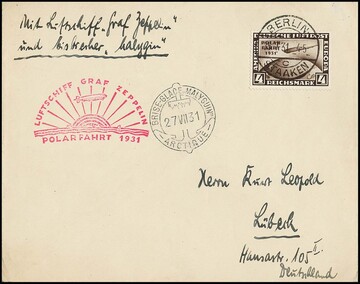 Mit Luftschiff "Graf Zeppelin"
und Eisbrecher "Malygin"
BERLIN
STAAKEN
DEUTSCHE LUFTPOST
POLAR-
FAHRT
1931
REICHSMARK
LUFTSCHIFF GRAF ZEPPELIN
POLARFAHRT 1931
BRISE-GLACE "MALYGUIN"
27 VII 31
ARCTIQUE
Herrn Kurt Leopold
Lübeck
Hansastr. 105 II.
Deutschland